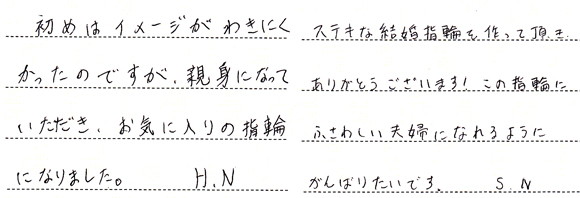 初めはイメージがわきにく
かったのですが、親身になって
いただき、お気に入りの指輪
になりました。 H.N
ステキな結婚指輪を作って頂き
ありがとうございます! この指輪に
ふさわしい夫婦になれるように
がんばりたいです。 S.N